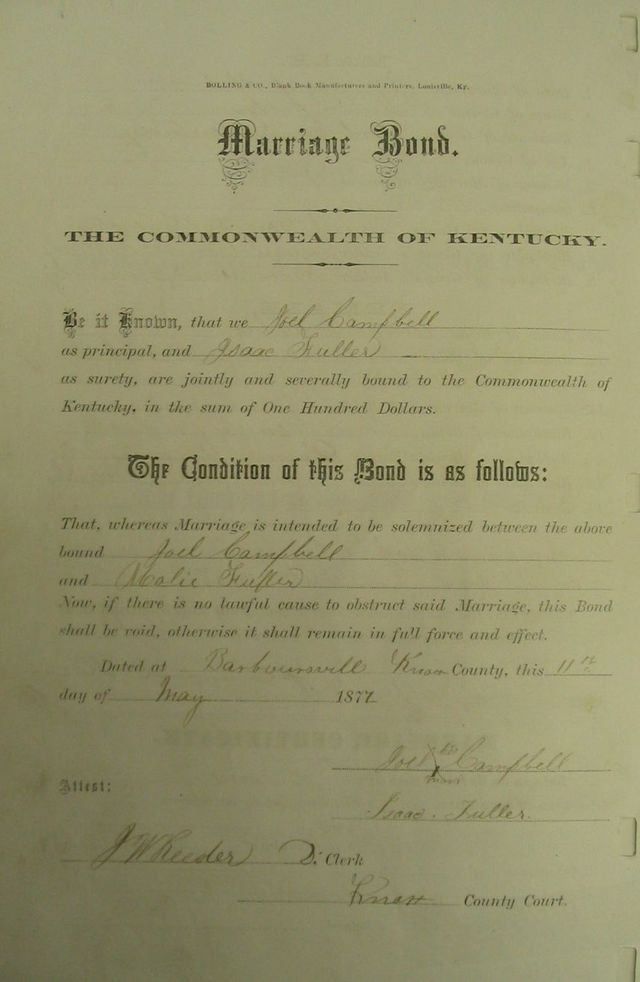 BOLLING & CO., Blank Book Manufacturers and Printers, Louisville, Ky.
Marriage Bond.
THE COMMONWEALTH OF KENTUCKY.
Be it Known, that we Joel Campbell
as principal, and Isaac Fuller
as surety, are jointly and severally bound to the Commonwealth of
Kentucky, in the sum of One Hundred Dollars.
The Condition of this Bond is as follows:
That, whereas Marriage is intended to be solemnized between the above
bound Joel Campbell
and Fuller
Now, if there is no lawful cause to obstruct said Marriage, this Bond
shall be void, otherwise it shall remain in full force and effect.
Dated at Barboursvill Knox County, this 11th
day of May 1877
Joel his X Campbell
mark
Attest:
Isaac. Fuller.
J W Reeder D. Clerk
Knox County Court.